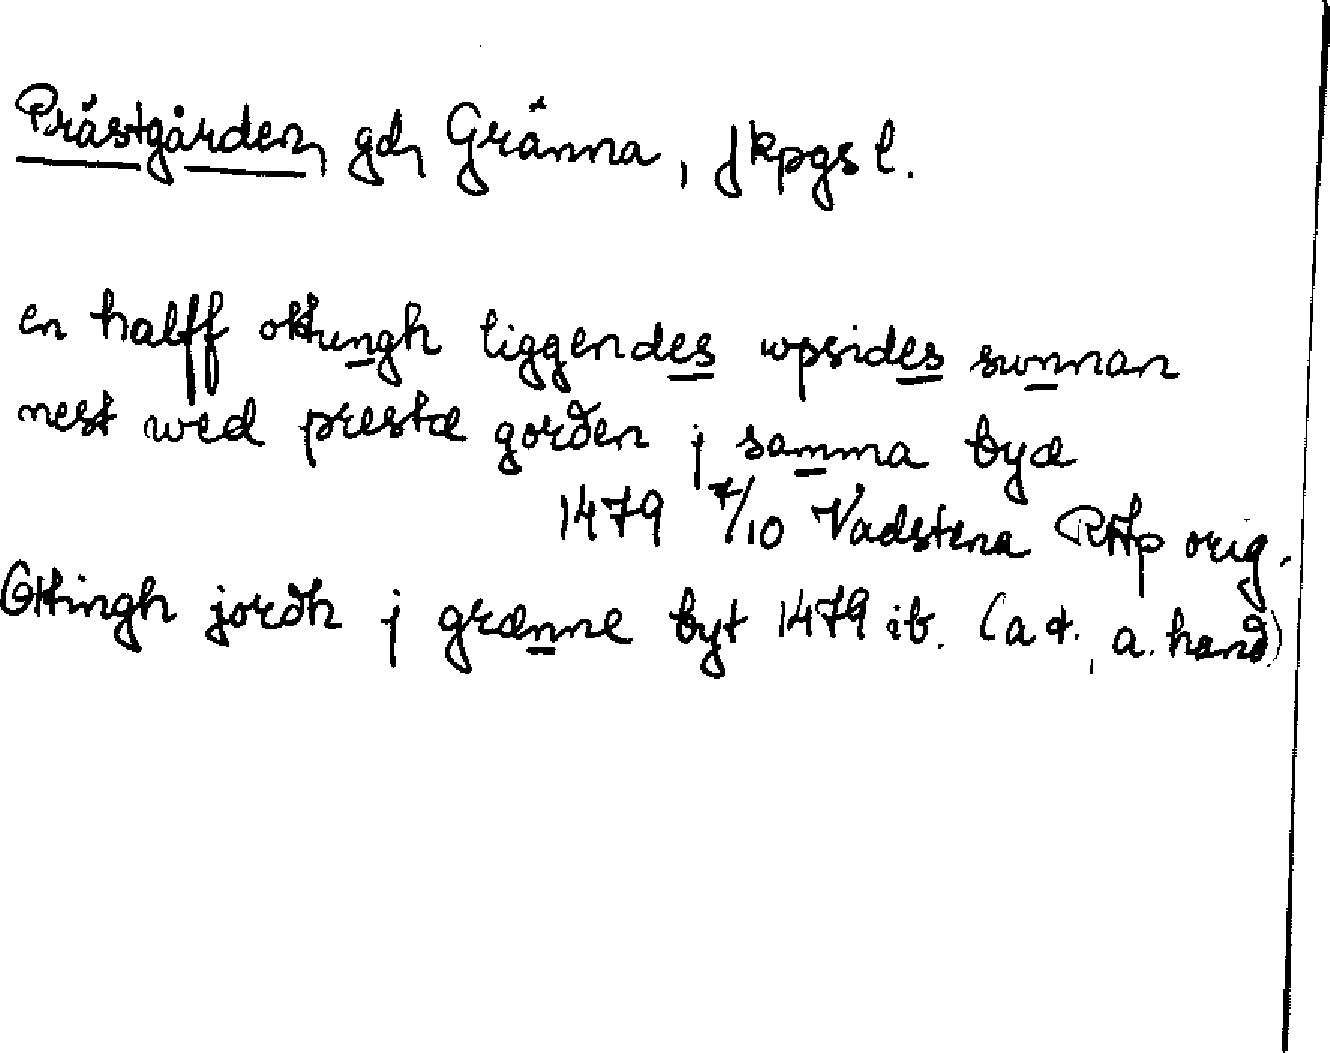 Prästgården, gd, Gränna, Jkpgs l.
en halff ottungh liggendes wpsides sunnan
nest wed prestæ gorðen j samma byæ
1479 7/10 Vadstena RAp orig.
Ottingh jorðh j grænne byt 1479 ib. (a t., a. hand)